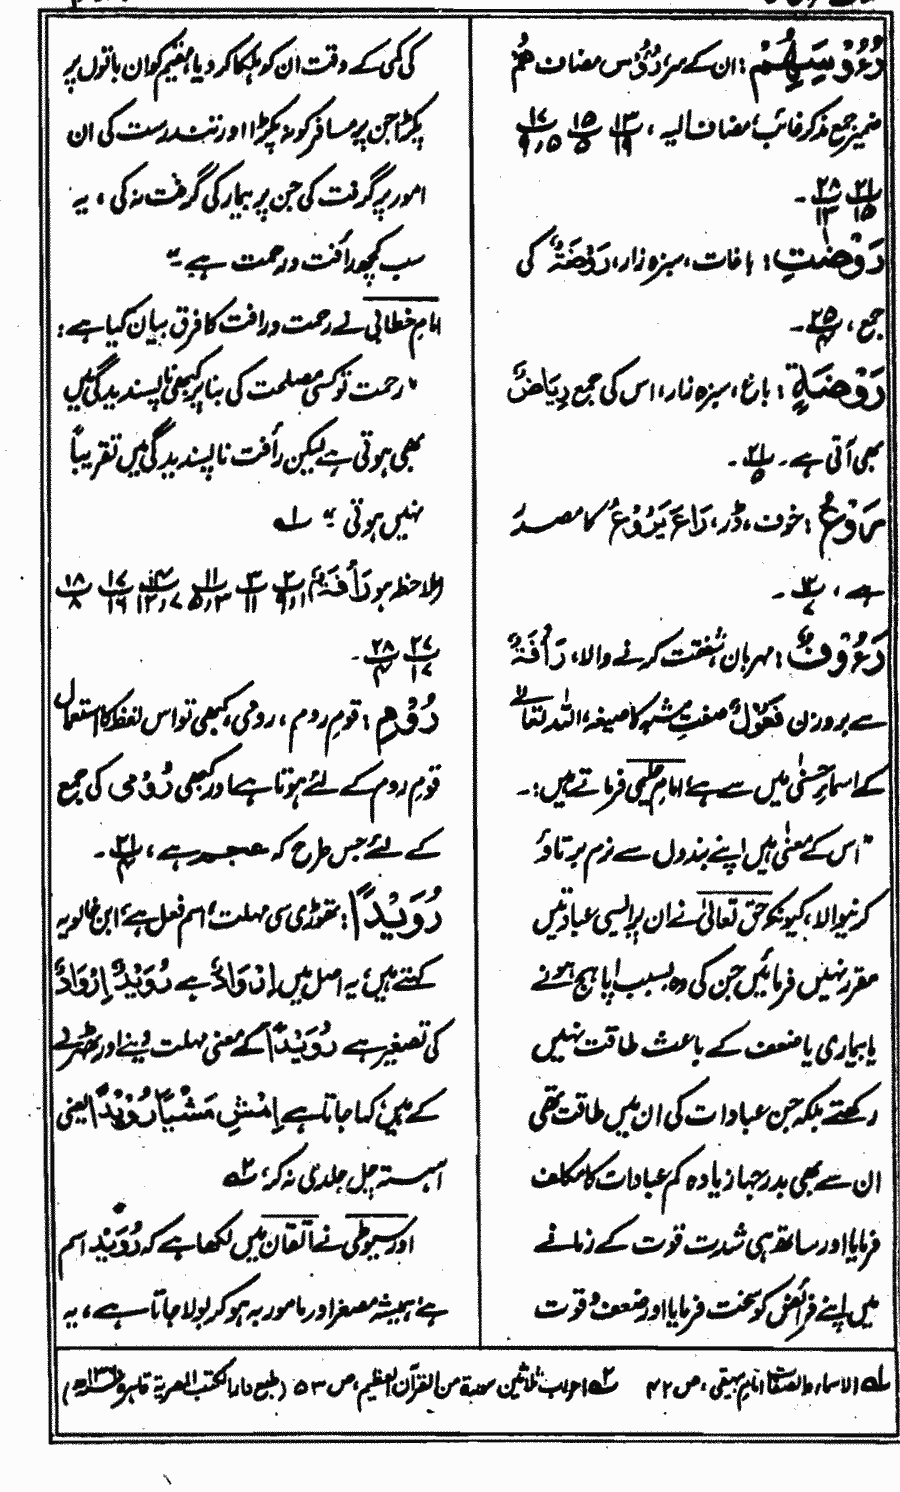 رُءُوْسِهِمْ: ان کے سر، رُءُوْس مضاف هُمْ
ضمیر جمع مذکر غائب، مضاف الیہ، پ۱۳/۱۹ پ۱۵/۵ پ۱۷/۵،۹
پ۲۱/۱۵ پ۲۸/۱۳۔
رَوْضٰتِ: باغات، سبزہ زار، رَوْضَةٌ کی
جمع، پ۲۵/۴۔
رَوْضَةٍ: باغ، سبزہ زار، اس کی جمع رِیَاضٌ
بھی آتی ہے۔ پ۲۱/۵۔
رَوْعُ: خوف، ڈر، رَاعَ یَرُوْعُ کا مصدر
ہے، پ۱۲/۷۔
رَءُوْفٌ: مہربان، شفقت کرنے والا، رَأْفَةٌ
سے بروزن فَعُوْلٌ صفتِ مشبہ کا صیغہ، اللہ تعالیٰ
کے اسماءِ حسنیٰ میں سے ہے، امام حلیمی فرماتے ہیں:۔
"اس کے معنیٰ ہیں اپنے بندوں سے نرم برتاؤ
کرنیوالا، کیونکہ حق تعالیٰ نے ان پر ایسی عبادتیں
مقرر نہیں فرمائیں جن کی وہ بسبب اپاہج ہونے
یا بیماری یا ضعف کے باعث طاقت نہیں
رکھتے بلکہ جن عبادات کی ان میں طاقت تھی
ان سے بھی بدرجہا زیادہ کم عبادات کا مکلف
فرمایا اور ساتھ ہی شدتِ قوت کے زمانے
میں اپنے فرائض کو سخت فرمایا اور ضعف قوت
کی کمی کے وقت ان کو ہلکا کر دیا، مقیم کو ان باتوں پر
پکڑا جن پر مسافر کو نہ پکڑا اور تندرست کی ان
امور پر گرفت کی جن پر بیمار کی گرفت نہ کی، یہ
سب کچھ رأفت و رحمت ہے"
امام خطابی نے رحمت و رافت کا فرق بیان کیا ہے:
"رحمت تو کسی مصلحت کی بنا پر کبھی ناپسندیدگی میں
بھی ہوتی ہے لیکن رأفت ناپسندیدگی میں تقریباً
نہیں ہوتی" لہ
(ملاحظہ ہو رَأْفَةٌ) پ۲/۱،۹ پ۳/۱۱ پ۱۱/۳،۵ پ۱۴/۷،۱۲ پ۱۷/۱۶ پ۱۸/۸
پ۲۷/۱۷ پ۲۸/۴۔
رُوْمِ: قومِ روم، رومی، کبھی تو اس لفظ کا استعمال
قومِ روم کے لئے ہوتا ہے اور کبھی رُوْمی کی جمع
کے لئے جس طرح کہ عجم ہے، پ۲۱/۴۔
رُوَیْدًا: تھوڑی سی مہلت، اسم فعل ہے، ابن خالویہ
کہتے ہیں، یہ اصل میں اِرْوَادٌ ہے رُوَیْدٌ اِرْوَادٌ
کی تصغیر ہے رُوَیْدًا کے معنی مہلت دینے اور ٹھہرنے
کے ہیں، کہا جاتا ہے اِمْشِ مَشْیًا رُوَیْدًا یعنی
آہستہ چل جلدی نہ کر، ۲ہ
اور سیوطی نے اتقان میں لکھا ہے کہ رُوَیْد اسم
ہے، ہمیشہ مصغر اور مامور بہ ہو کر بولا جاتا ہے، یہ
لہ الاسماء والصفات امام بیہقی، ص ۴۲ ۲ہ اعراب ثلاثین سورۃ من القرآن العظیم، ص ۵۳ (طبع دار الکتب المصریۃ قاہرہ)